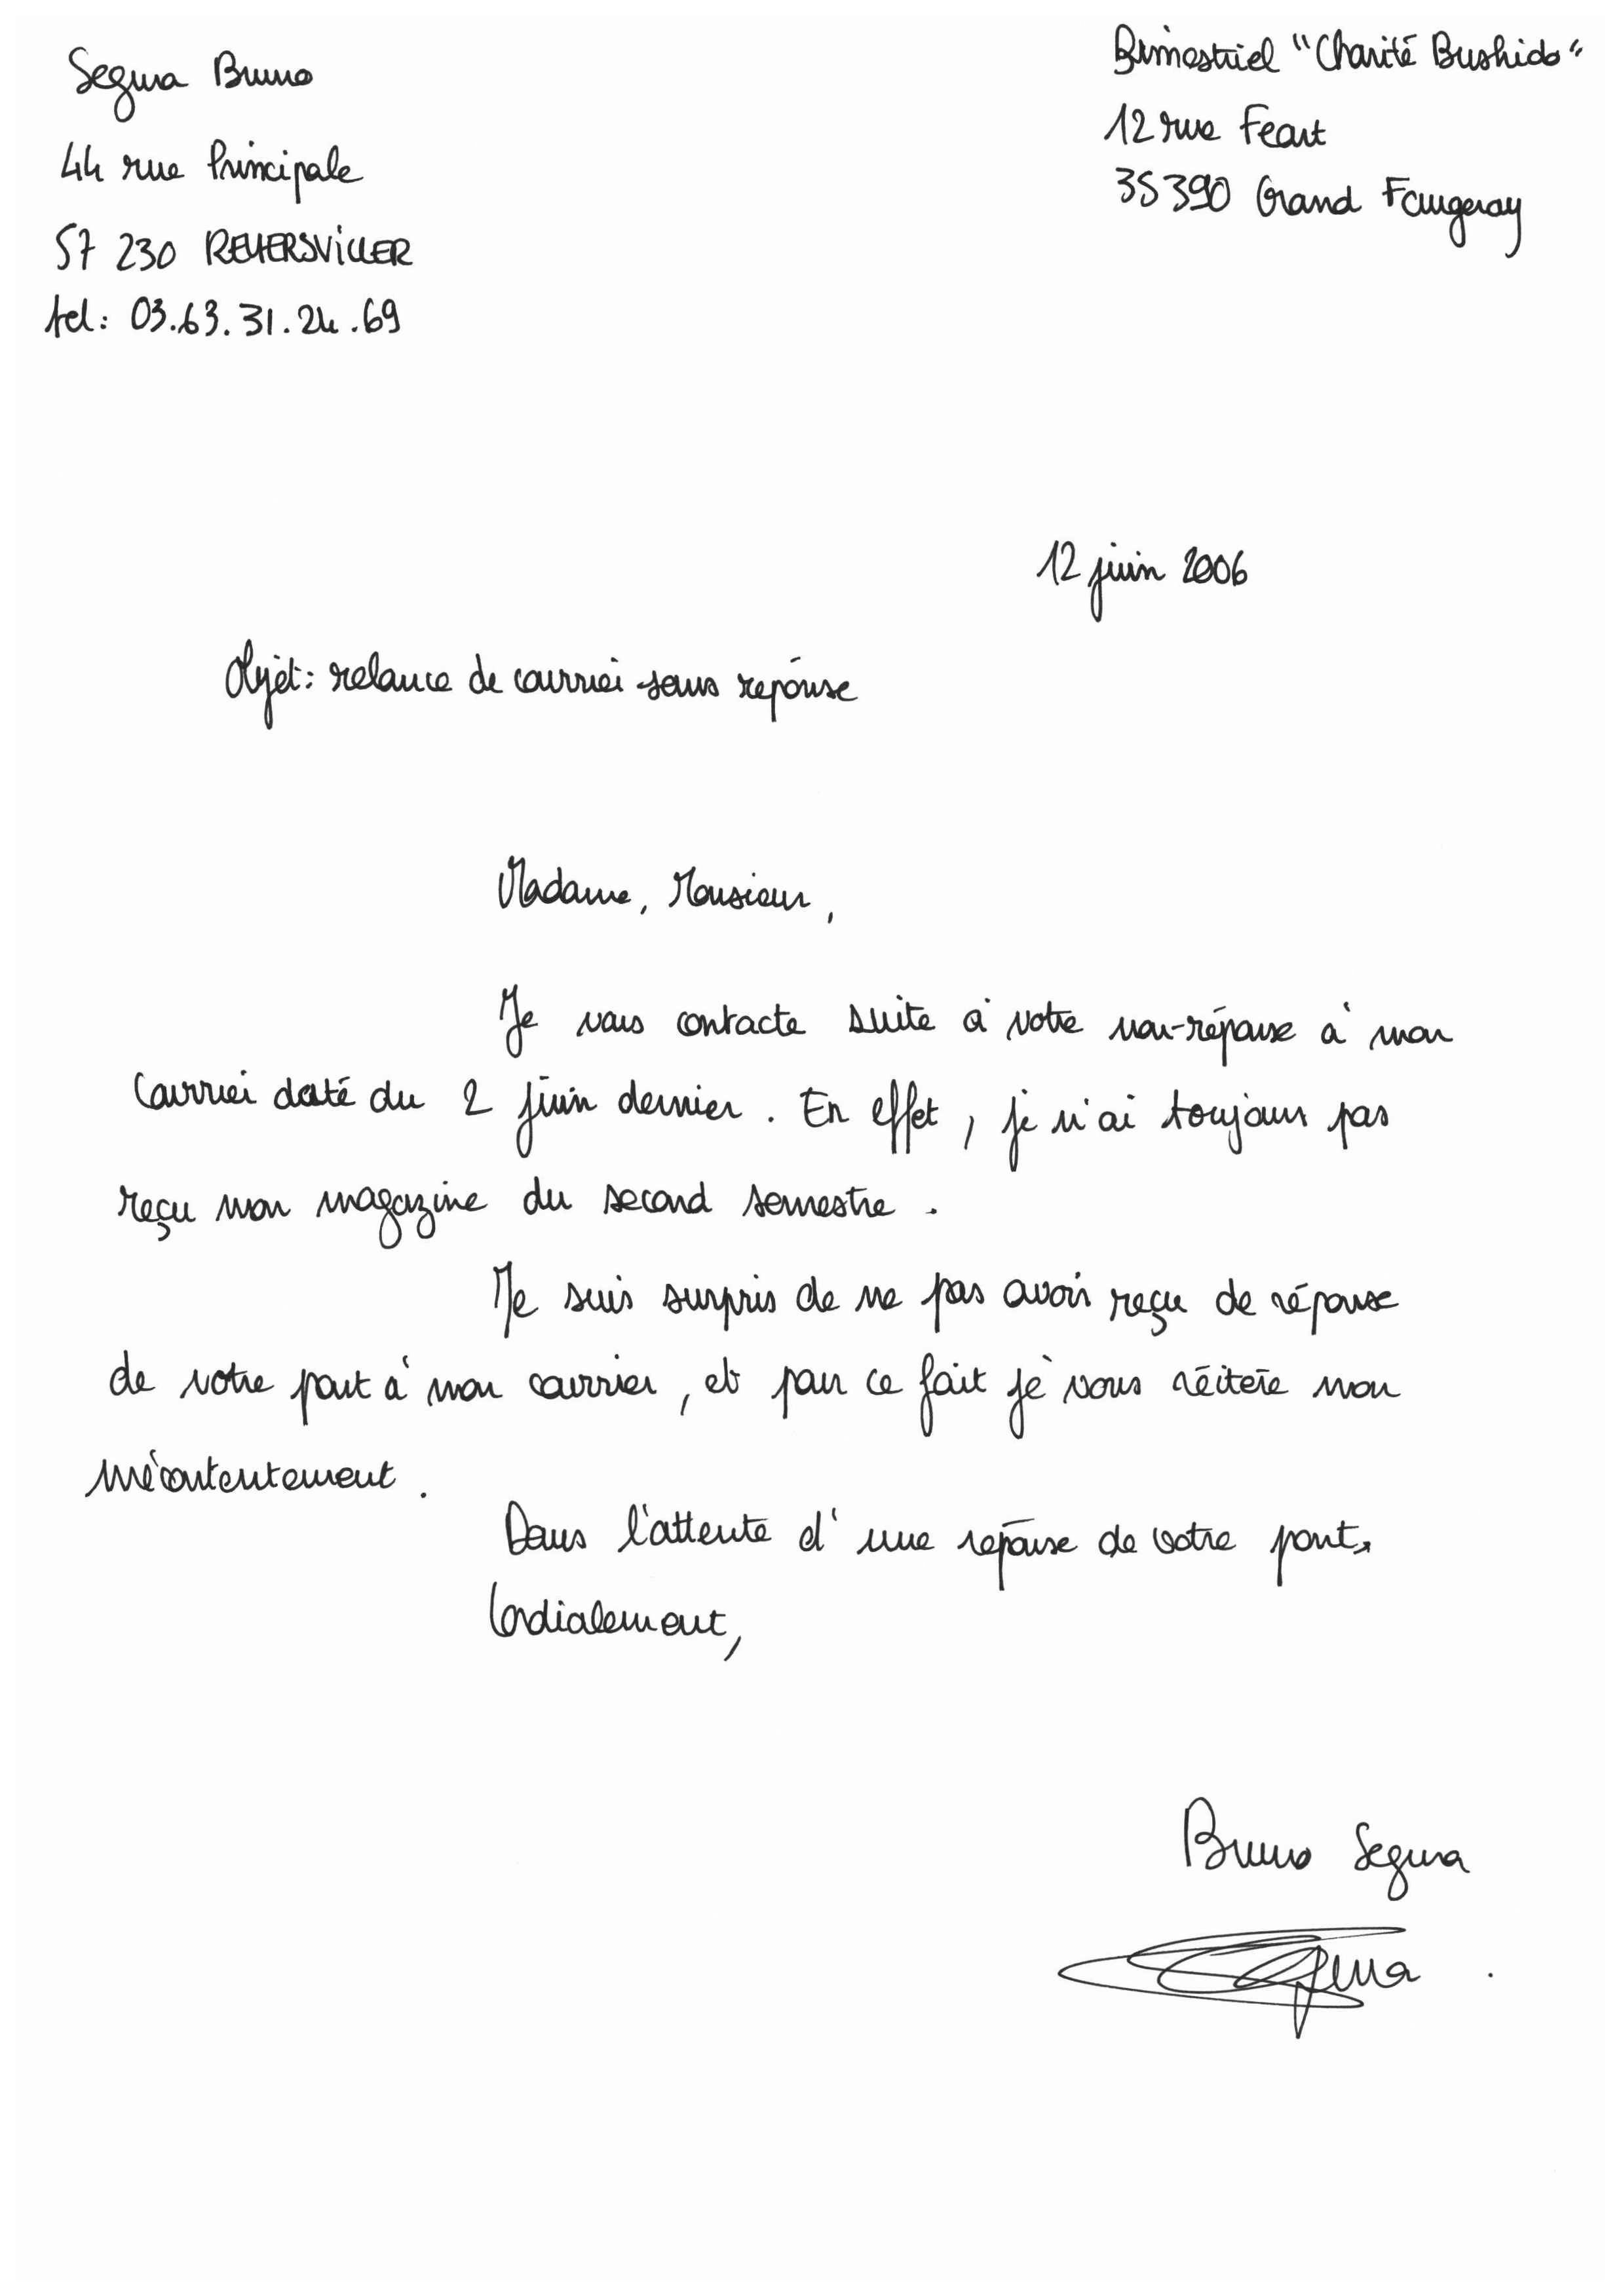 Segura Bruno
44 rue Principale
57 230 REHERSVILLER
tel: 03.63.31.24.69
Bimestriel "Charité Bushido"
12 rue Feart
35390 Grand Fougeray
12 juin 2006
Objet: relance de courrier sans réponse
Madame, Monsieur,
Je vous contacte suite à votre non-réponse à mon
Courrier daté du 2 juin dernier. En effet, je n'ai toujours pas
reçu mon magazine du second semestre.
Je suis surpris de ne pas avoir reçu de réponse
de votre part à mon courrier, et par ce fait je vous réitère mon
mécontentement.
Dans l'attente d'une réponse de votre part,
Cordialement,
Bruno Segura